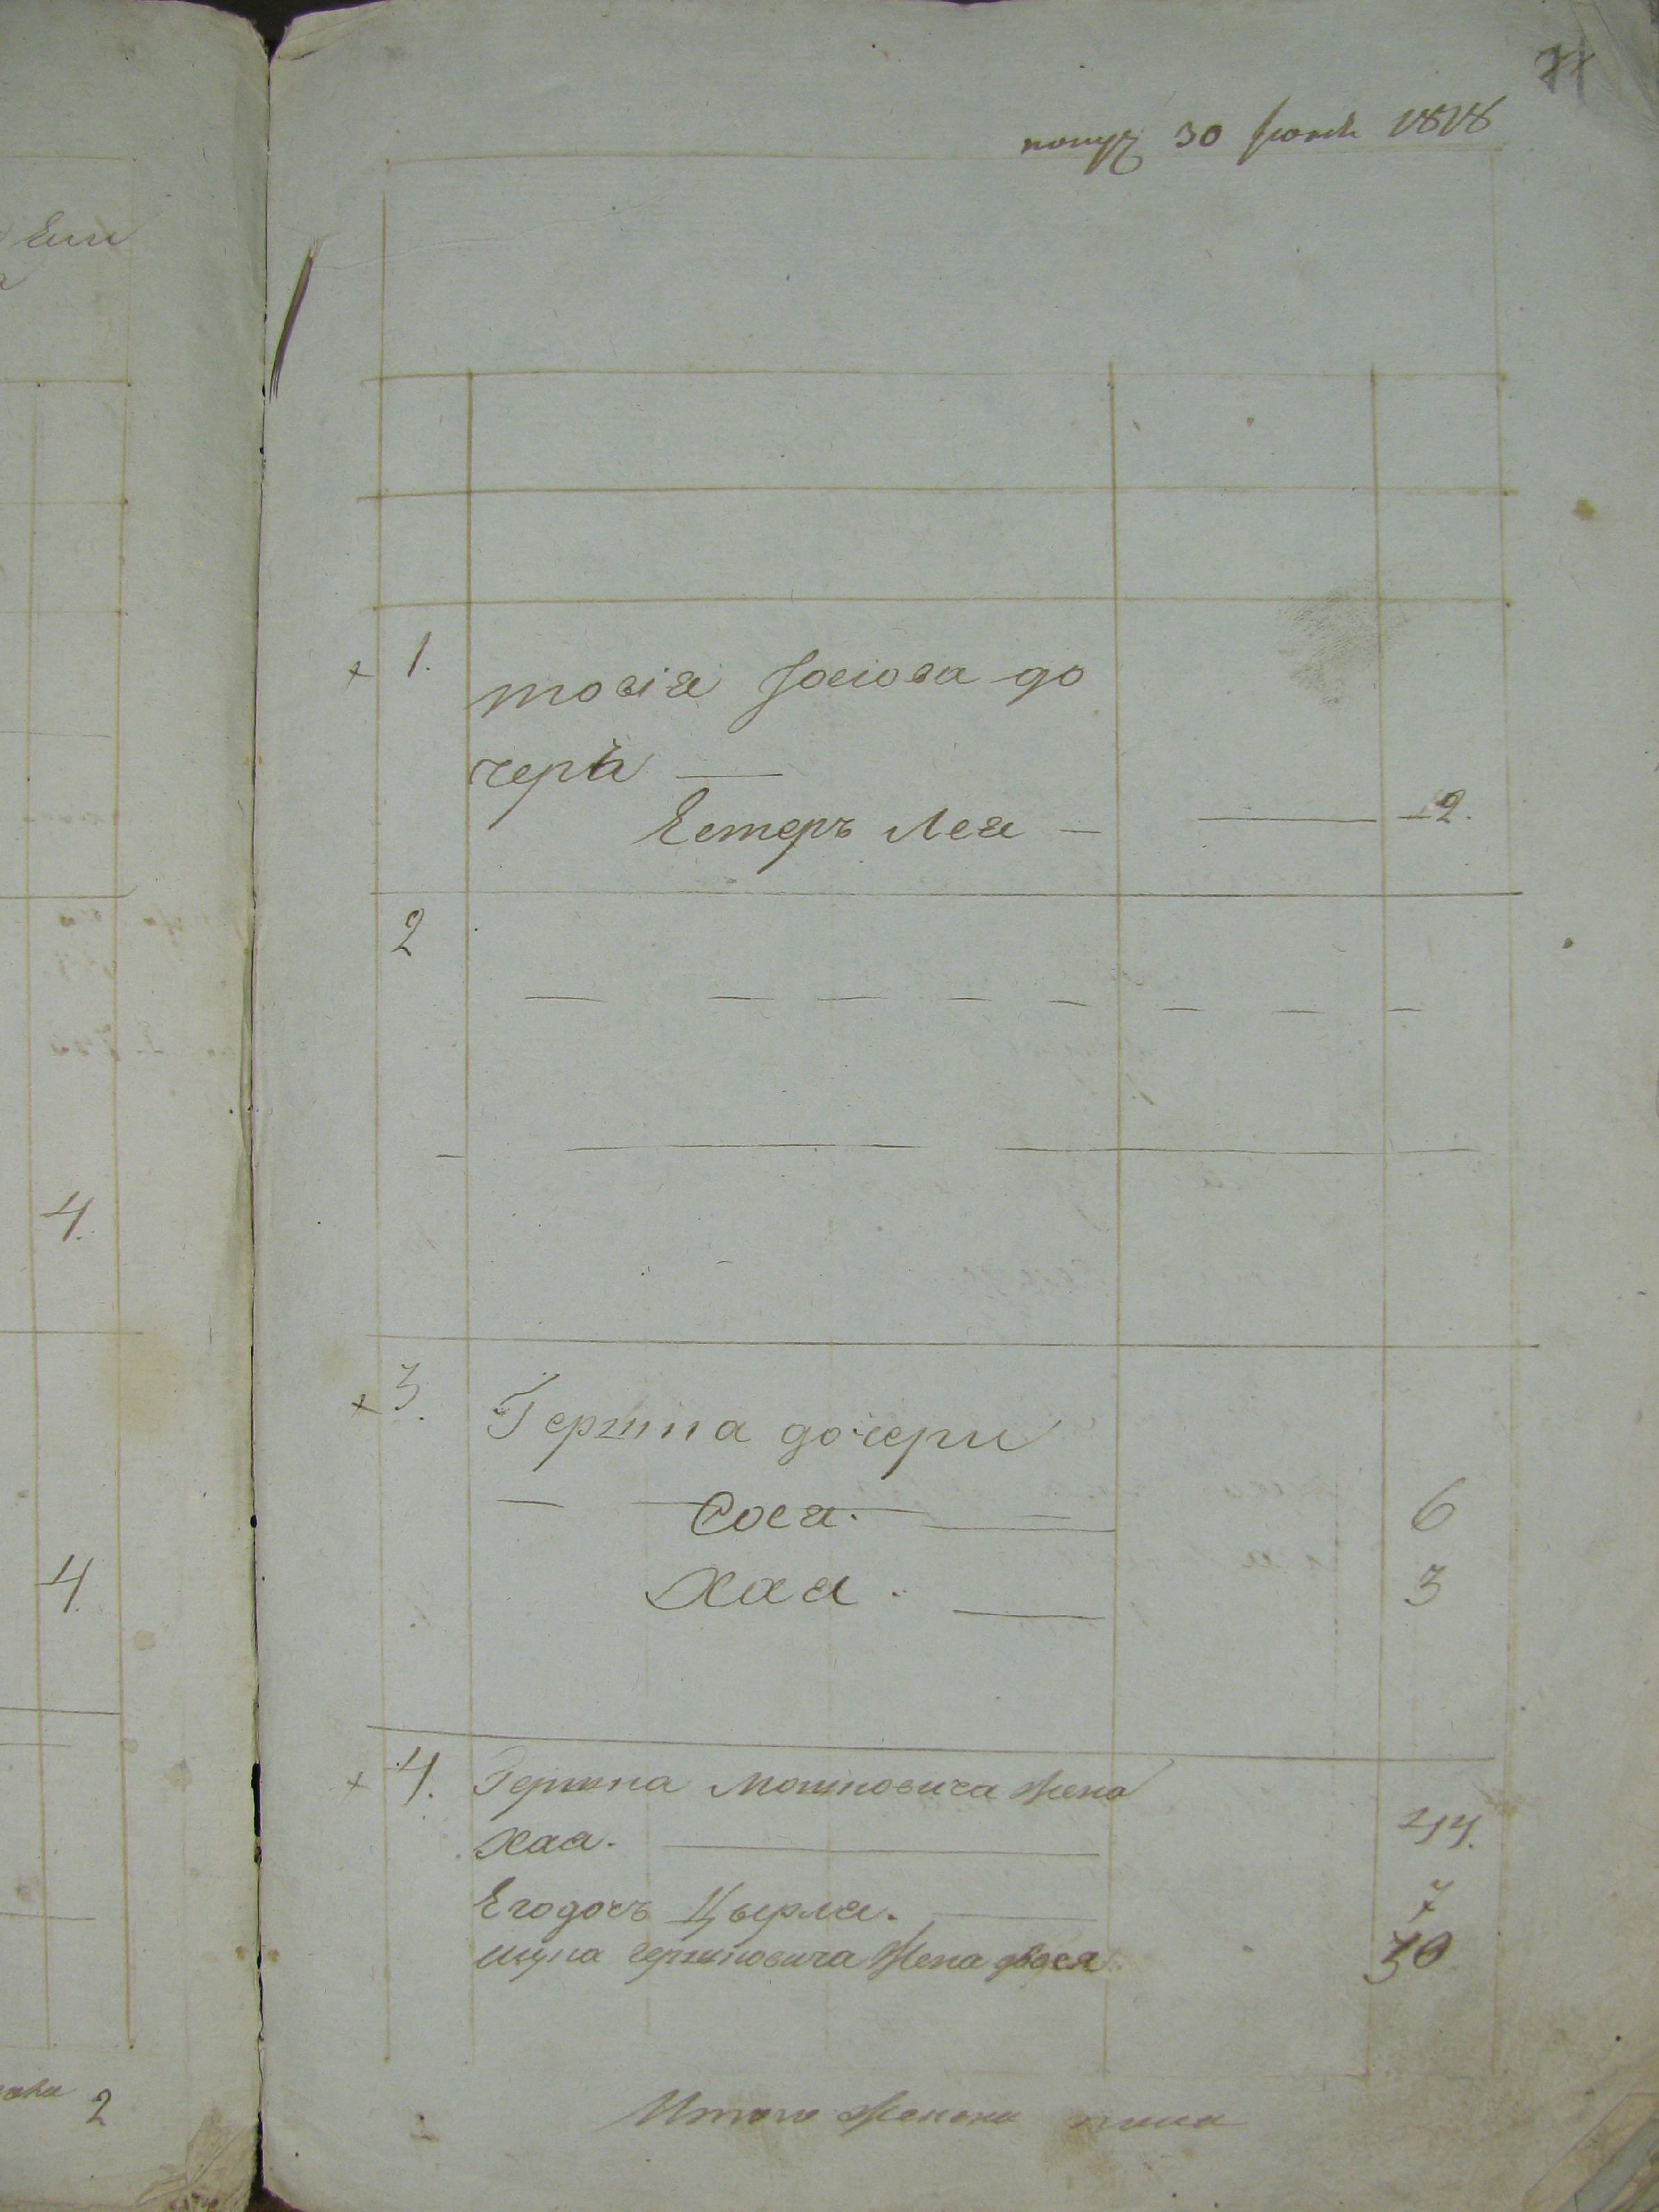 71
получ 30 Іюня 1818
+ 1. товія Іосіова до
черъ —
Естеръ Лея — — 2.
2
+ 3. Гершна дочери
Сося. — 6
Хая. — 3
+ 4. Гершна Мошновича жена
Хая. — 44.
Его дочъ Цырля. — 7
гершновича жена двося 30
Итого женска пола
4.
4
2